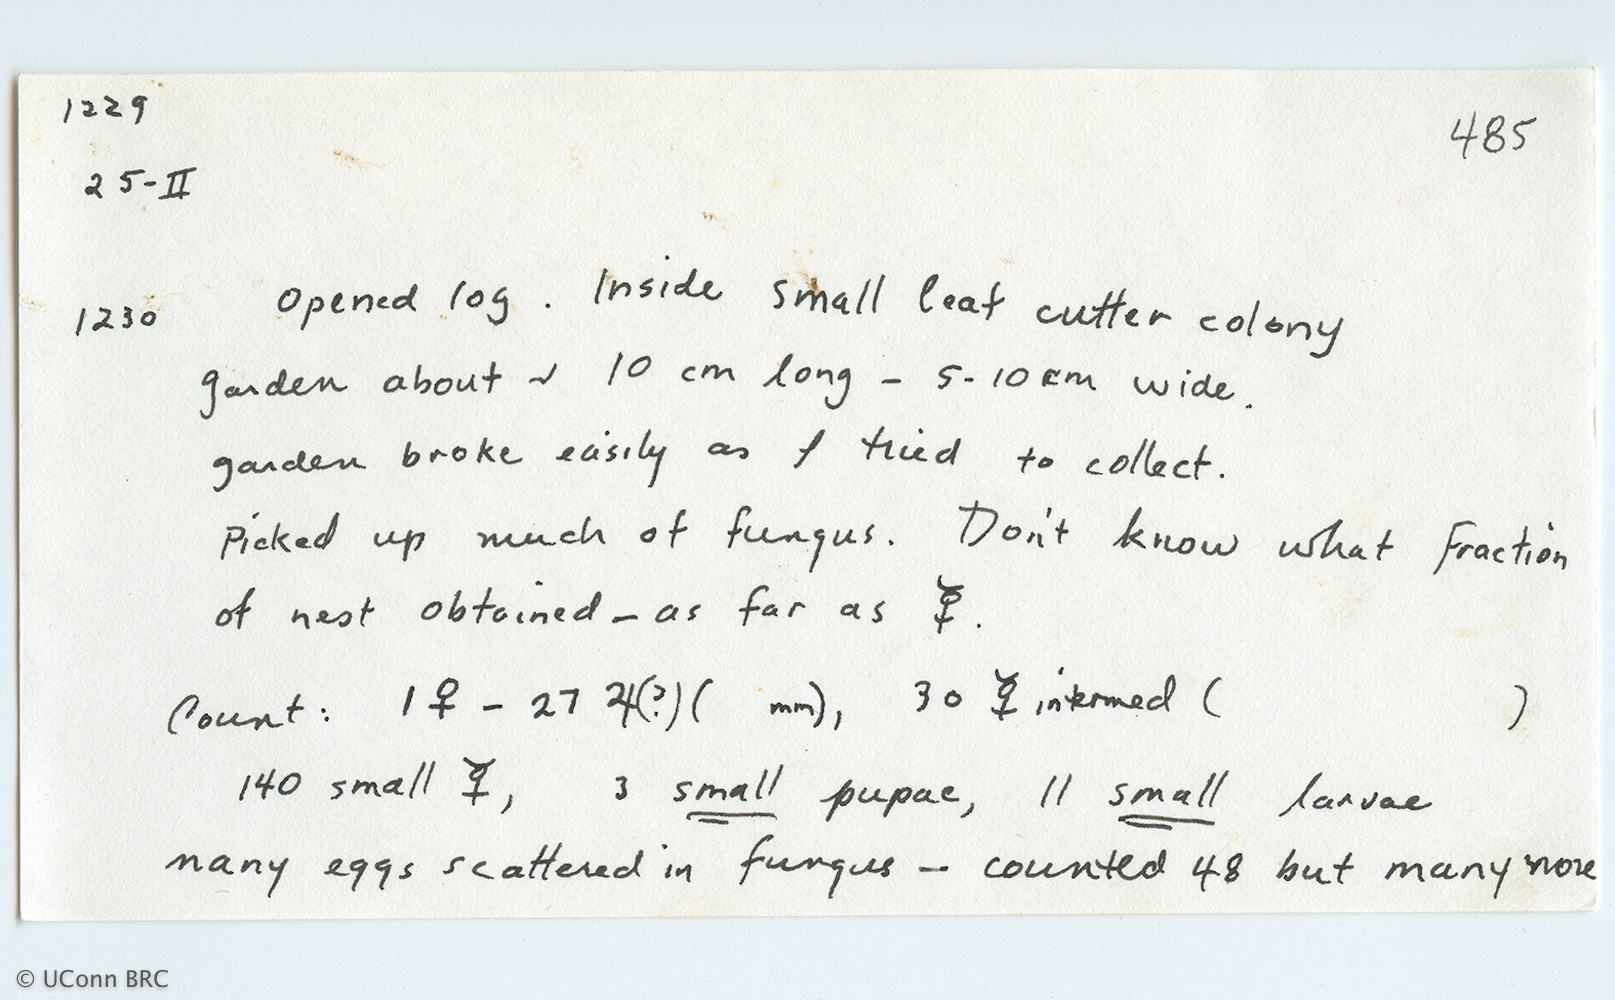 1229
485
25-II
1230 Opened log. Inside small leaf cutter colony
garden about ~ 10 cm long - 5-10 cm wide.
garden broke easily as I tried to collect.
Picked up much of fungus. Don't know what fraction
of nest obtained - as far as ☿.
Count: 1♀ - 27 ♃(?)( mm), 30 ☿ intermed ( )
140 small ☿, 3 small pupae, 11 small larvae
many eggs scattered in fungus - counted 48 but many more
© UConn BRC